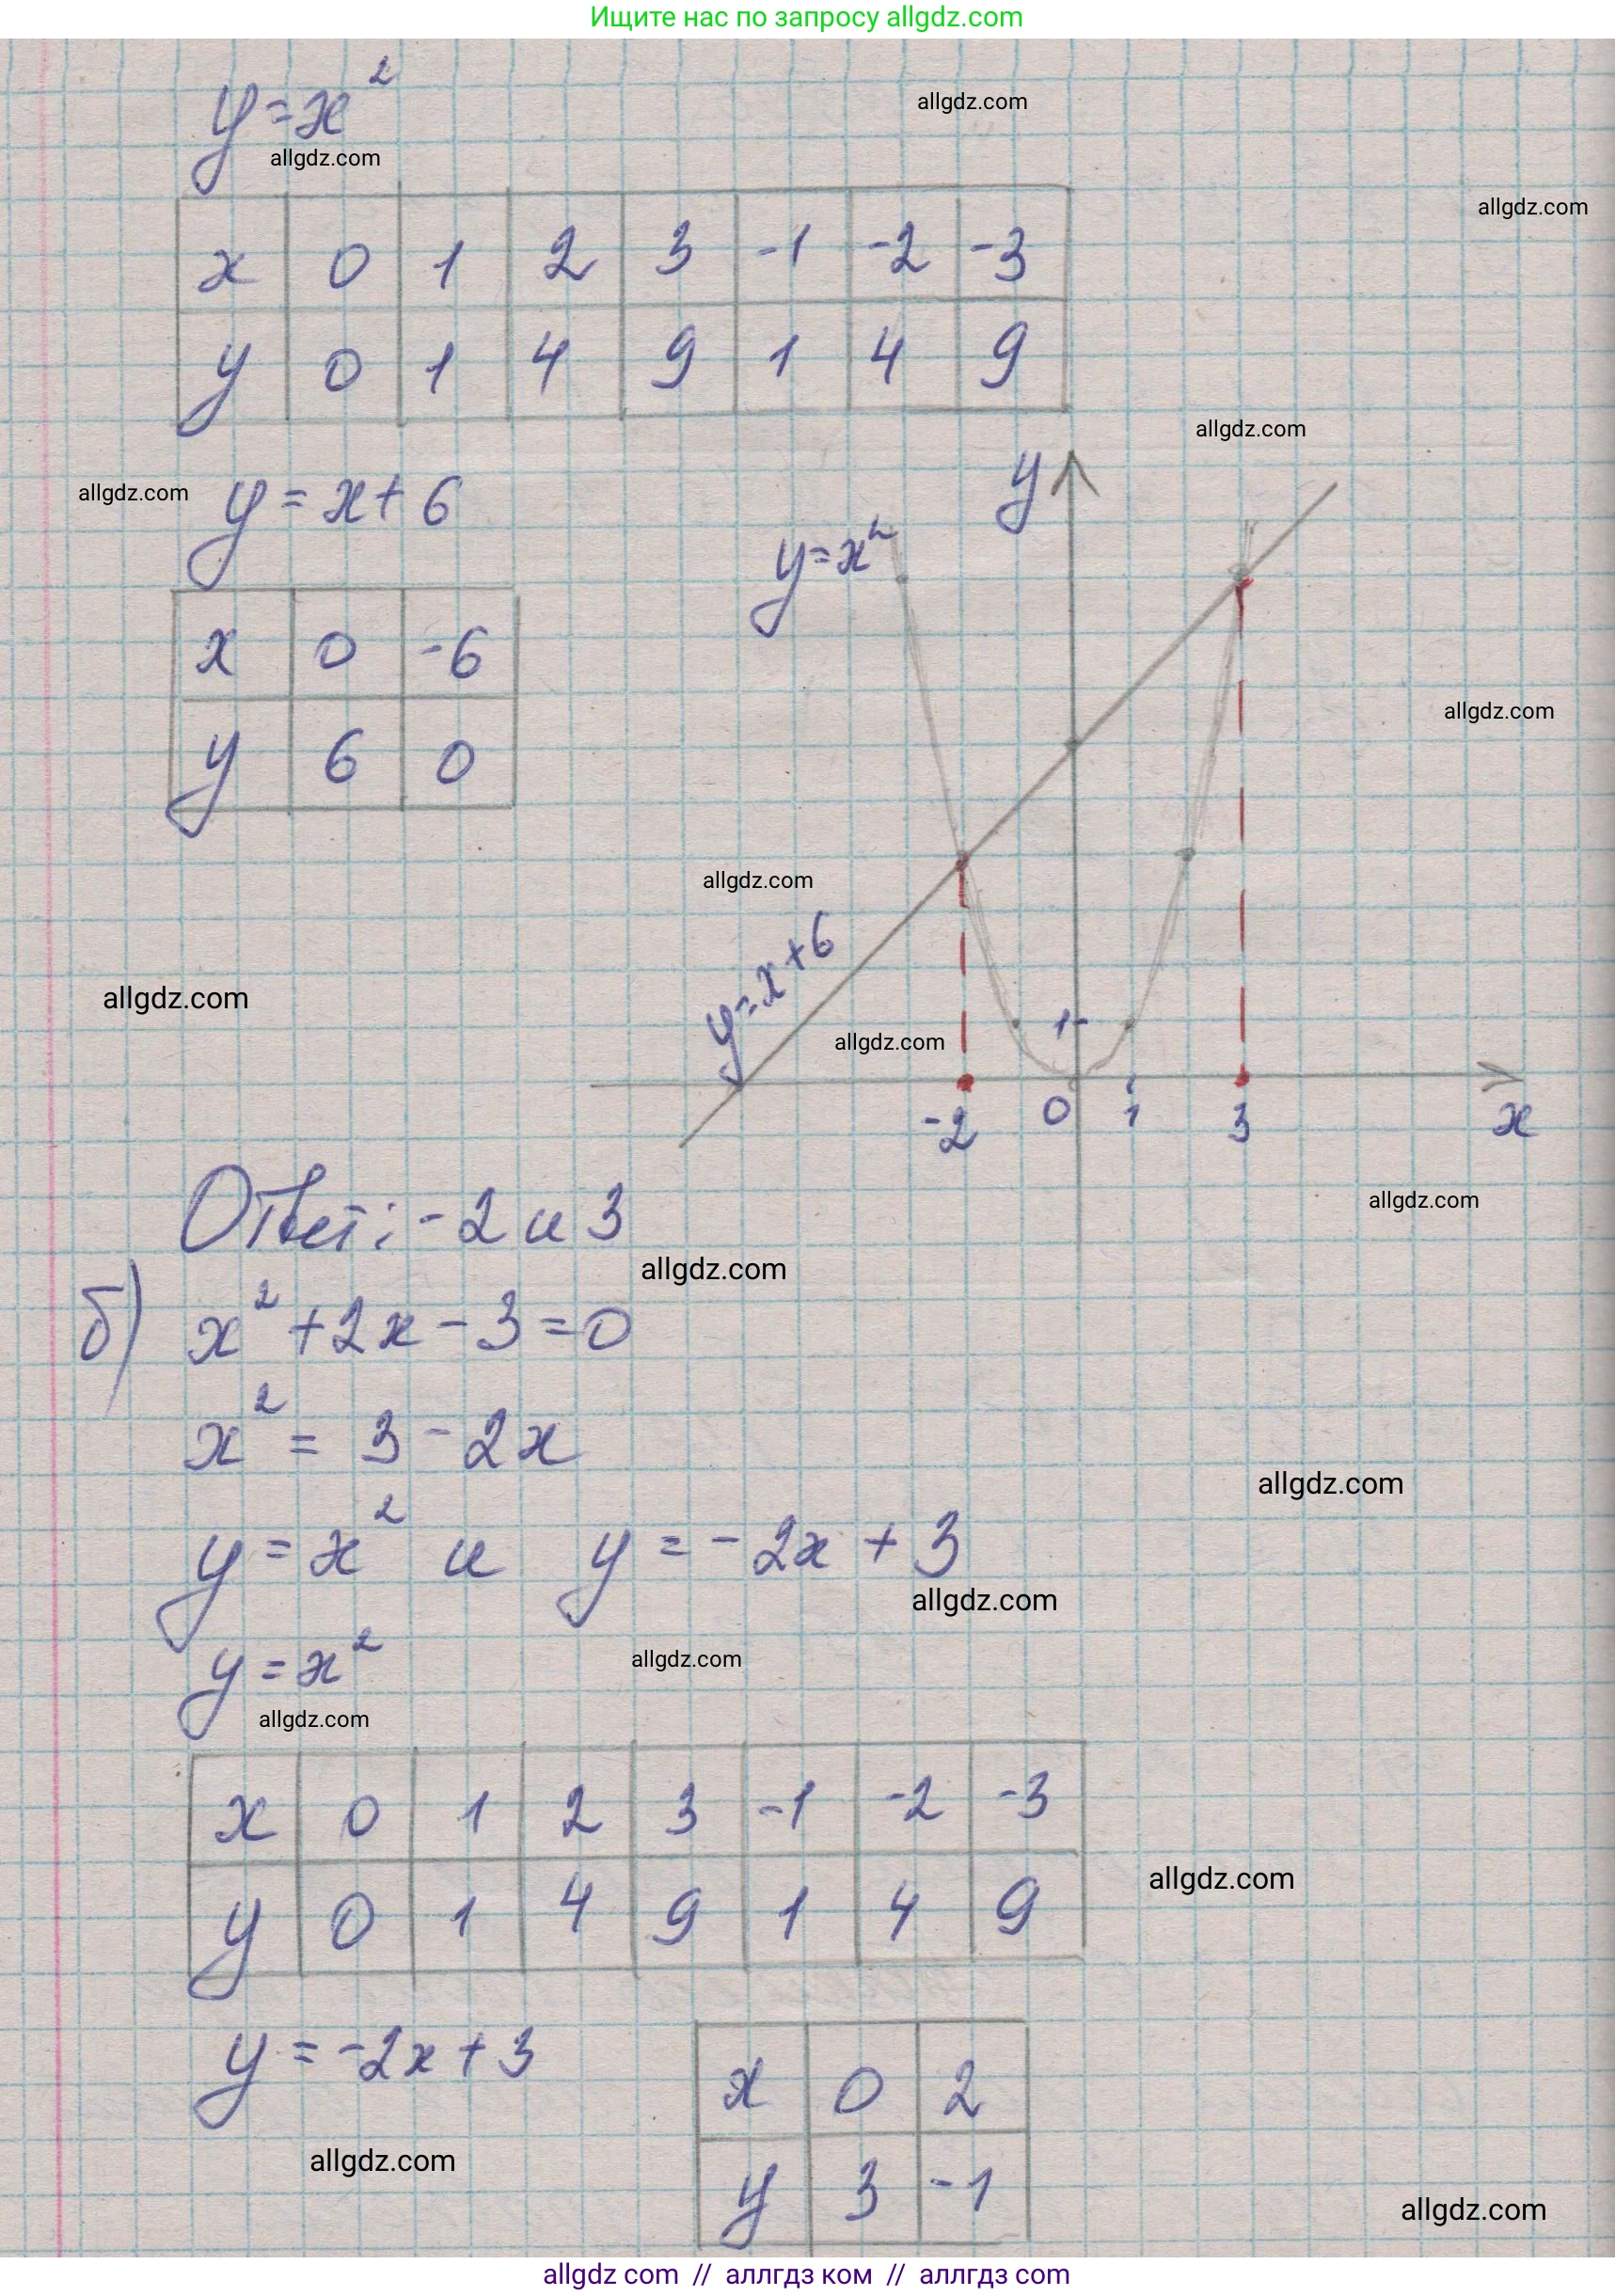 Ищите нас по запросу allgdz.com
y = x²
allgdz.com
allgdz.com
allgdz.com
x 0 1 2 3 -1 -2 -3
y 0 1 4 9 1 4 9
allgdz.com
allgdz.com
y = x + 6
x 0 -6
y 6 0
y
y = x²
allgdz.com
allgdz.com
y = x + 6
allgdz.com
allgdz.com
1
-2 0 1 3 x
allgdz.com
Ответ: -2 и 3
allgdz.com
б) x² + 2x - 3 = 0
x² = 3 - 2x
allgdz.com
y = x² и y = -2x + 3
allgdz.com
y = x²
allgdz.com
allgdz.com
x 0 1 2 3 -1 -2 -3
y 0 1 4 9 1 4 9
allgdz.com
y = -2x + 3
x 0 2
y 3 -1
allgdz.com
allgdz.com
allgdz com // аллгдз ком // аллгдз com